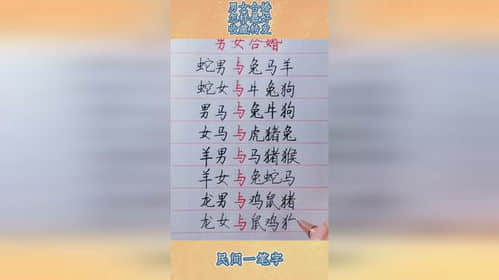 男女合婚
怎样最好
收藏转发
男女合婚
蛇男与兔马羊
蛇女与牛兔狗
男马与兔牛狗
女马与虎猪兔
羊男与马猪猴
羊女与兔蛇马
龙男与鸡鼠猪
龙女与鼠鸡
民间一笔字